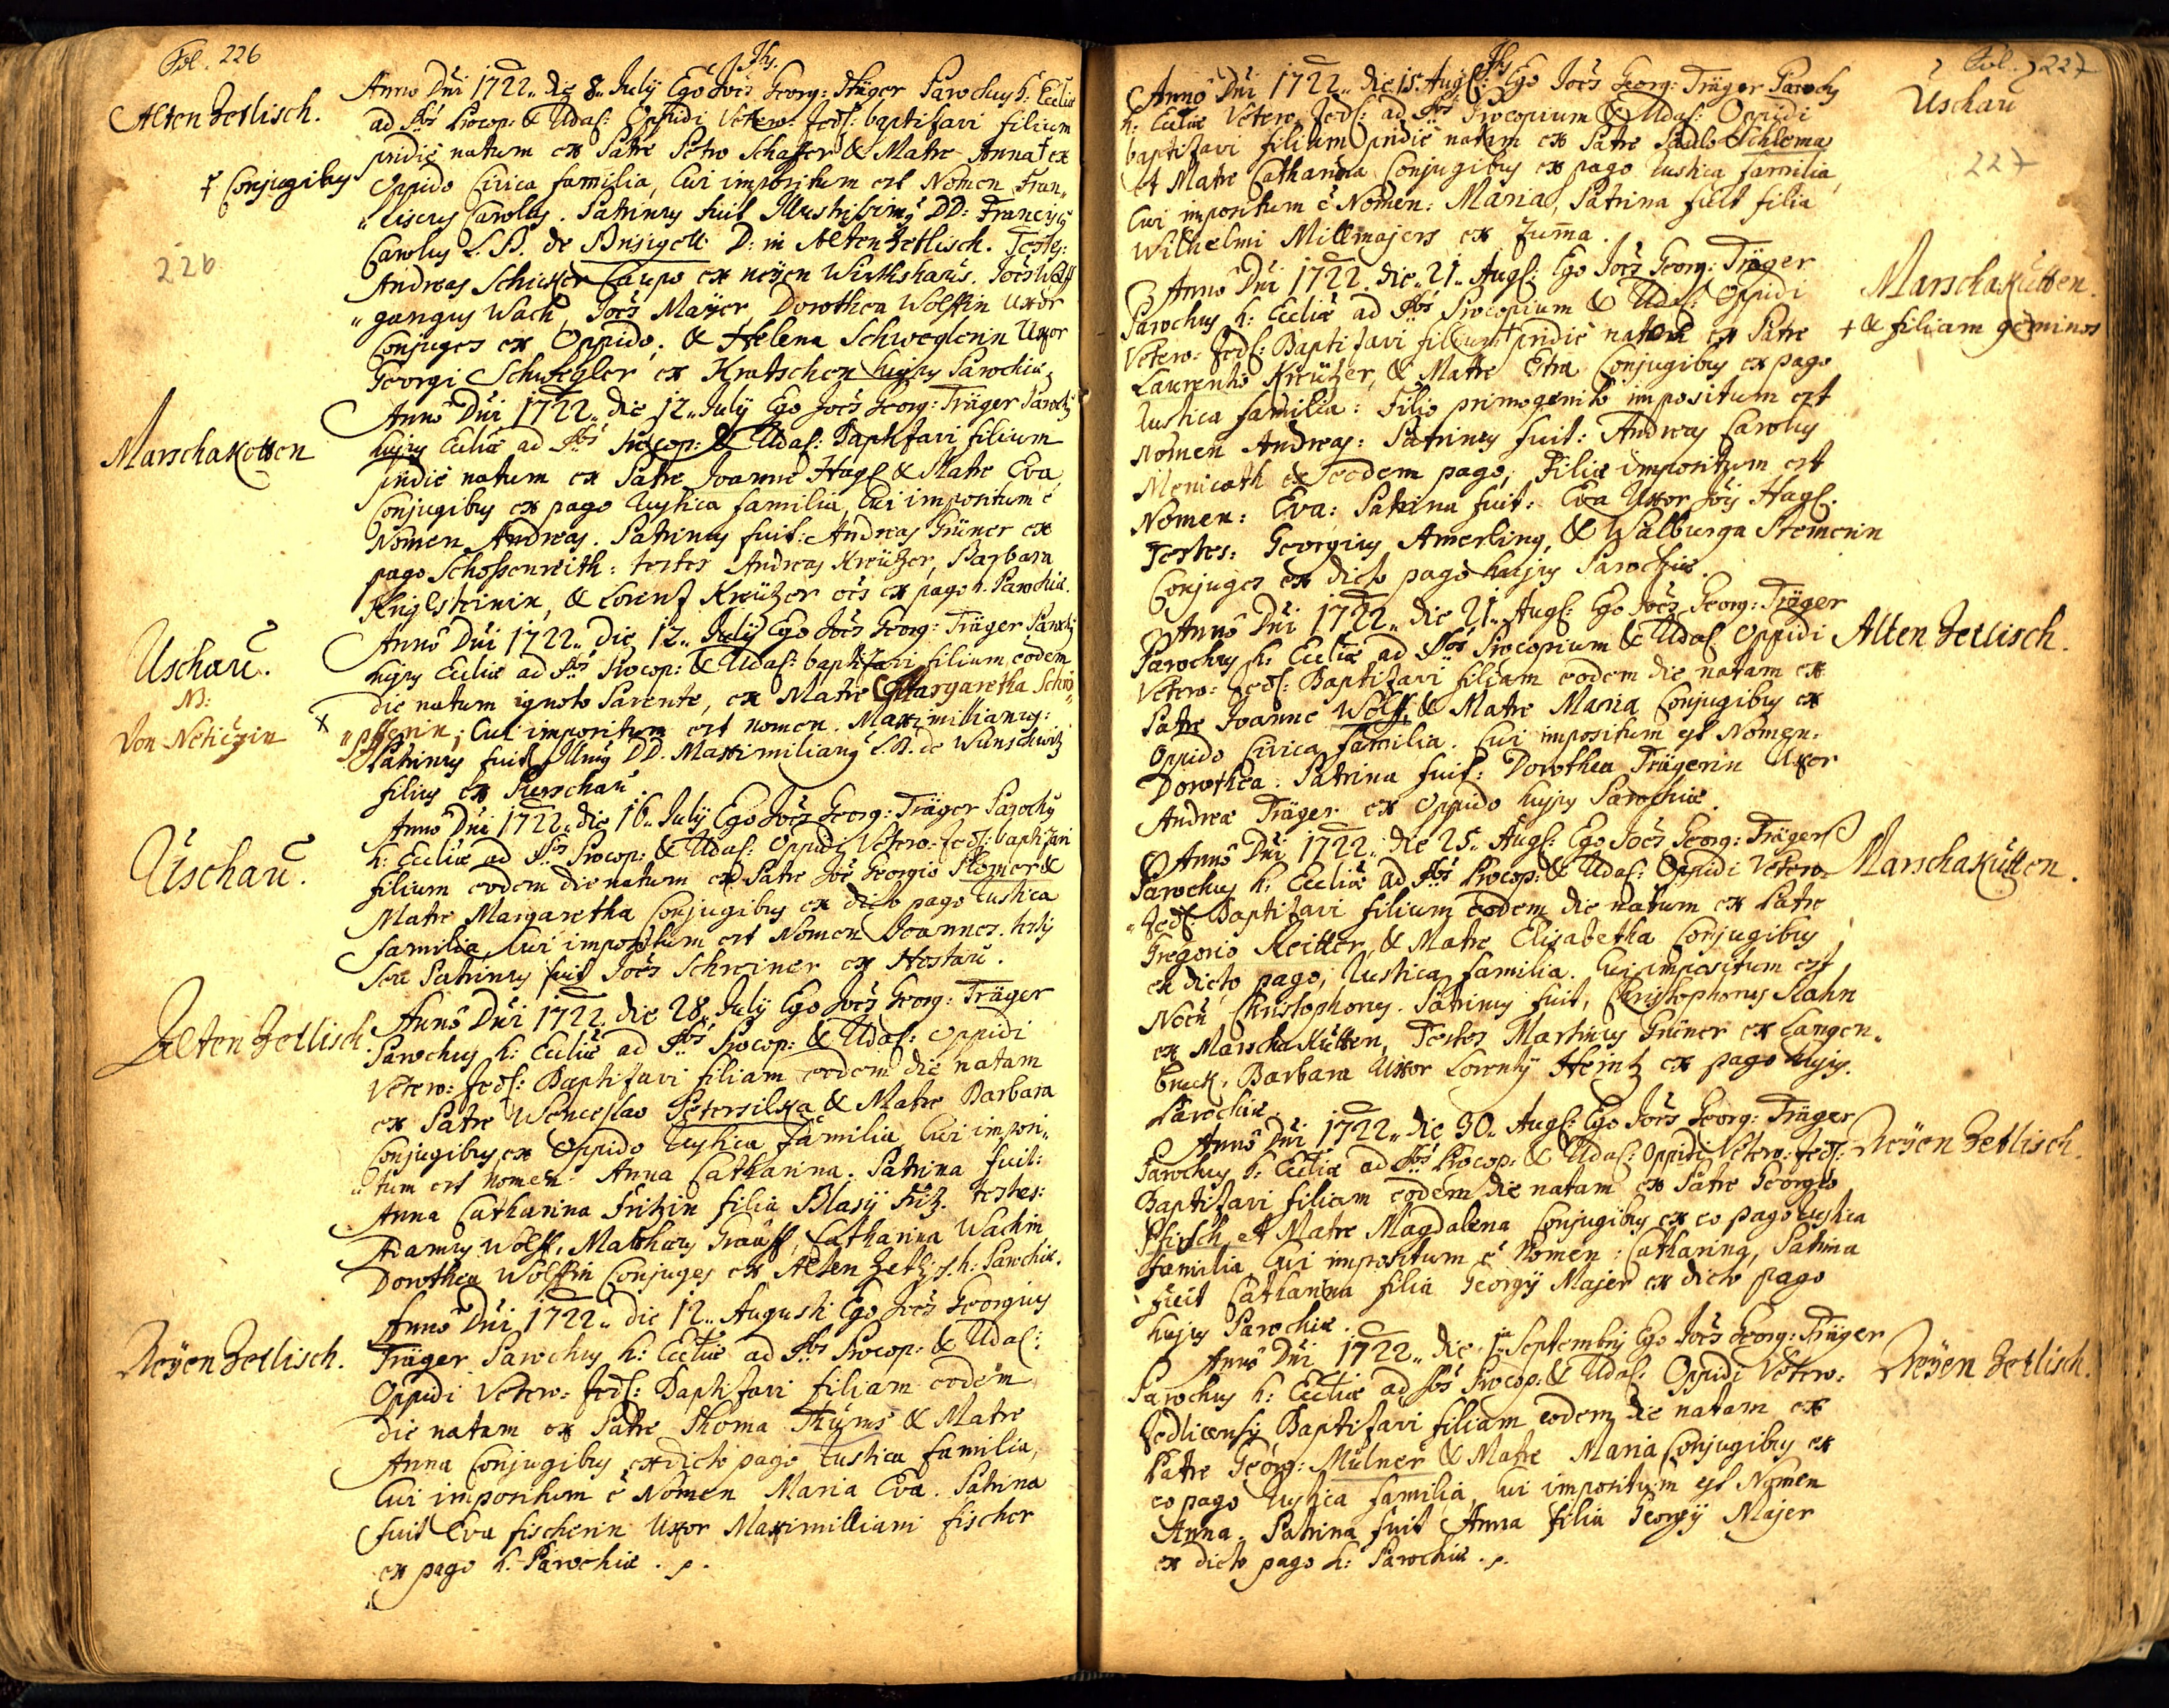 Fol. 226
Jhs.
Alten Zetlisch.
Anno Dni 1722. die 8. July Ego Joes Georg: Träger Parochus h: Ecclia
ad Stos Procop: & Udal: Oppidi Vetero-Zedl: baptisavi filium
pridie natum ex Patre Petro Schaffer & Matre Anna † ex
† Conjugibus
Oppido Civica familia, Cui impositum est Nomen Fran„
„ciscus Carolus. Patrinus fuit Illustrissimus DD: Franciscus
Carolus L. B. de D: in Alten Zetlisch. Testes:
226
Andreas Schicker Caupo ex neyen Wirthshaus. Joes Wolff
„gangus Wach, Joes Mayer, Dorothea Wolffin Uxor
Conjuges ex Oppido. & Helena Schweglerin Uxor
Georgi Schwegler ex Kratschen hujus Parochiæ.
Marschakotten
Anno Dni 1722. die 12. July Ego Joes Georg: Träger Paroch
hujus Ecliæ ad Stos Procop: & Udal: Baptisavi filium
pridie natum ex Patre Joanne Hagl & Matre Eva
Conjugibus ex pago Rustica familia, Cui impositum ē
Nomen Andreas. Patrinus fuit: Andreas Grüner ex
pago Schossenreith: testes Andreas Kreützer, Barbara
& Lorenz Kreützer oēs ex pago h. Parochiæ.
Uschau.
NB:
Von Neticzin
Anno Dni 1722. die 12. July Ego Joes Georg: Träger Paroch
hujus Ecliæ ad Stos Procop: & Udal: baptisavi filium eodem
die natum ignoto Parente, ex Matre Margaretha Schrö„
† „pfferin; Cui impositum est nomen. Maximillianus:
Patrinus fuit Illmus DD. Maximilianus L. B. de Wunschwitz
filius ex Purschau.
Uschau.
Anno Dni 1722. die 16. July Ego Joes Georg: Träger Parochus
h: Ecliæ ad Stos Procop: & Udal: Oppidi Vetero-Zedl: baptisavi
filium eodem die natum ex Patre Joe Georgio Römer &
Matre Margaretha Conjugibus ex dicto pago Rustica
familia, Cui impositum est Nomen Joannes. testis
seu Patrinus fuit Joes Schreiner ex Hostau.
Alten Zetlisch
Anno Dni 1722. die 28. July Ego Joes Georg: Träger
Parochus h: Ecliæ ad Stos Procop: & Udal: Oppidi
Vetero: Zedl: Baptisavi filiam eodem die natam
ex Patre Wenceslao Petersilka & Matre Barbara
Conjugibus ex Oppido Rustica familia, Cui impori„
„tum est nomen Anna Catharina. Patrina fuit:
Anna Catharina Fritzin filia Blasij Fritz. testes:
Adamus Wolff, Mathæus Grauff, Catharina Wachin
Dorothea Wolffin Conjuges ex Alten Zetlisch. h: Parochiæ.
Neyen Zetlisch.
Anno Dni 1722. die 12. Augusti Ego Joes Georgius
Träger Parochus h: Ecliæ ad Stos Procop: & Udal:
Oppidi Vetero: Zedl: Baptisavi filiam eodem
die natam ex Patre Thoma Thüms & Matre
Anna Conjugibus ex dicto pago Rustica familia,
Cui impositum ē Nomen Maria Eva. Patrina
fuit Eva fischerin Uxor Maximilliani fischer
ex pago h. Parochiæ. p.
Fol. 227
Jhs
Uschau
Anno Dni 1722. die 15. Augs: Ego Joes Georg: Träger Parochus
h: Ecliæ Vetero: Zedl: ad Stos Procopium & Udal: Oppidi
baptisavi filiam pridie natam ex Patre Paulo Schlema
227
et Matre Catharina Conjugibus ex pago Rustica familia,
Cui impositum ē Nomen: Maria, Patrina fuit filia
Wilhelmi Millmajers ex Zuma.
Marschakütten.
Anno Dni 1722. die 21. Augs: Ego Joes Georg: Träger
Parochus h: Ecliæ ad Stos Procopium & Udal: Oppidi
† & filiam geminos
Vetero: Zedl: Baptisavi filium † pridie natos ex Patre
Laurentio Kreützer, & Matre Eva Conjugibus ex pago
Rustica familia: Filio primogenito impositum est
nomen Andreas: Patrinus fuit: Andreas Carolus
Menicath ex eodem pago, Filiæ impositum est
Nomen: Eva: Patrina fuit: Eva Uxor Jois Hagl.
Testes: Georgius Amerling, & Walburga Stemerin
Conjuges ex dicto pago hujus Parochiæ.
Alten Zetlisch.
Anno Dni 1722. die 21. Augs: Ego Joes Georg: Träger
Parochus h: Ecliæ ad Stos Procopium & Udal: Oppidi
Vetero: Zedl: Baptisavi filiam eodem die natam ex
Patre Joanne Wolff & Matre Maria Conjugibus ex
Oppido Civica familia. Cui impositum est Nomen.
Dorothea. Patrina fuit: Dorothea Trägerin Uxor
Andreæ Träger ex Oppido hujus Parochiæ.
Marschakütten.
Anno Dni 1722. die 25. Augs: Ego Joes Georg: Träger
Parochus h: Ecliæ ad Stos Procop: & Udal: Oppidi Vetero-
„Zedl: Baptisavi filium eodem die natum ex Patre
Gregorio Reitter, & Matre Elisabetha Conjugibus
ex dicto pago, Rustica familia. Cui impositum est
Noen Christophorus. Patrinus fuit, Christophorus Rahn
ex Marschakütten, Testes Martinus Grüner ex Langen„
bruck, Barbara Uxor Lorentz Heintz ex pago hujus.
Parochiæ.
Neyen Zetlisch.
Anno Dni 1722. die 30. Augs: Ego Joes Georg: Träger
Parochus h: Ecliæ ad Stos Procop: & Udal: Oppidi Vetero: Zedl:
Baptisavi filiam eodem die natam ex Patre Georgio
Pfirsch et Matre Magdalena Conjugibus ex eo pago Rustica
familia Cui impositum ē Nomen: Catharina, Patrina
fuit Catharina filia Georgij Majer ex dicto pago
hujus Parochiæ.
Neyen Zetlisch.
Anno Dni 1722. die 1ma Septembris Ego Joes Georg: Träger
Parochus h: Ecliæ ad Stos Procop: & Udal: Oppidi Vetero:
Zedlicensis Baptisavi filiam eodem die natam ex
Patre Georg: Mülner & Matre Maria Conjugibus ex
eo pago Rustica familia, cui impositum est Nomen
Anna. Patrina fuit Anna filia Georgij Majer
ex dicto pago h: Parochiæ. p.